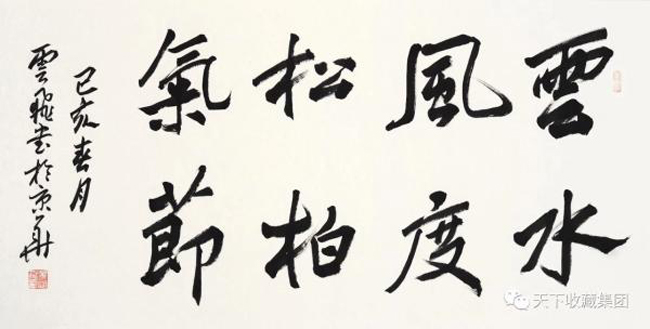 雲水
風度
松柏
氣節
己亥春月
雲飛書於京華
天下收藏集团